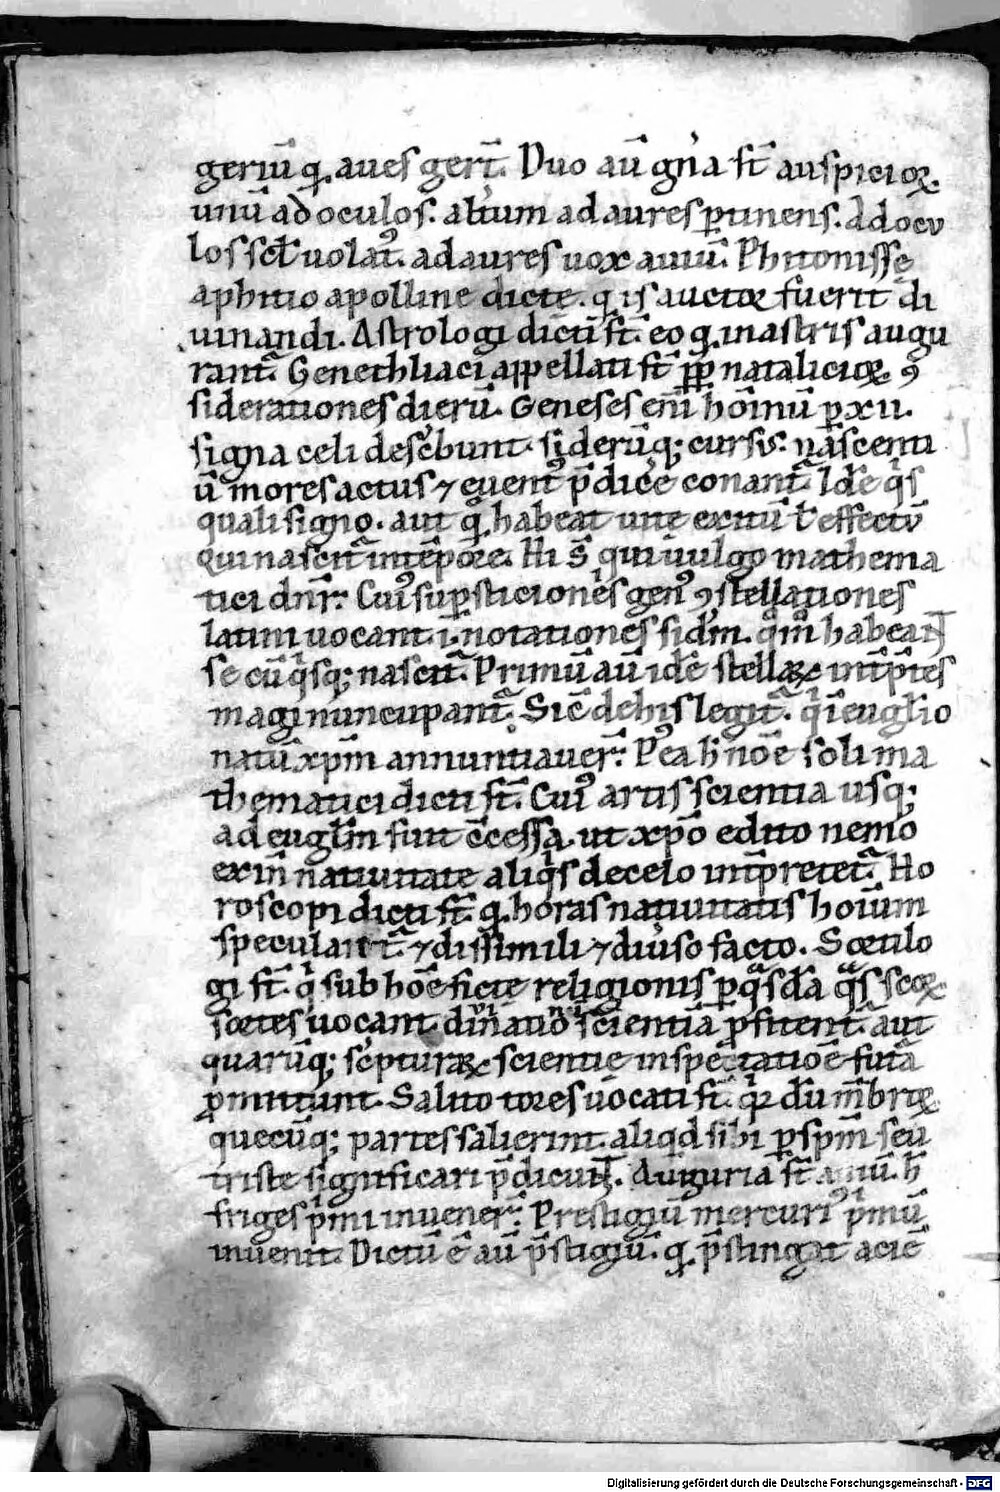 geriū q̨ aues gerẗ. Duo aū gn̄a sт̄ auspicioꝝ.
unū ad oculos. altum ad aures ꝑtinens. Ad ocu
los scł uolat᷒. ad aures uox auiū. Phitonissę
a phitio apolline dictę. q̨ is auctor fuerit di
uinandi. Astrologi dicti sт̄. eo q̨ in astris augu
rant᷑. Genethliaci appellati sт̄ ꝓp̄ natalicioꝝ ꝯ
siderationes dierū. Geneses eni̅ ho̅inū ꝑ xii.
signa celi desc͛bunt. siderūq; cursu. nascenti
ū mores actus ⁊ euent᷒ p̄dice̅ conant᷑. Id ē qͥs
quali signo. aut q̨ habeat uitę exitū ł effectū
qui nascit᷑ in te̅pore. Hi s̄ qui uulgo mathema
tici dn̅r̅. Cui᷒ supersticionis gen᷒ ꝯstellationes
latini uocant. i. notationes sidm̅. q̊m̊ habeant
se cū qͥsq; nascit᷑. Primū aū idē stellaꝝ int̅p̅tes
magi nuncupant᷑. Sic̅ de his legit᷑. qͥ i̅ euglio
natū xp̅m annuntiauer̅. P᷒ea h̅ noe̅ soli ma
thematici dicti sт̄. Cui᷒ artis scientia usq;
ad eugl̅m fuit co̅cessa. ut xp̅o edito nemo
exin̅ natiuitate alicui᷒ de celo int̅pretet᷑. Ho
roscopi dicti sт̄. q̨ horas natiuitatis hoi̅um
speculant᷑. ⁊ dissimili ⁊ diuso facto. Sortilo
gi sт̄. qͥ sub noe̅ fictę religionis ꝑ qᷓsdā qᷓs s̅coꝝ
sortes uocant diuinatio̅is scientiā ꝓfitent᷑. aut
quarūq; sc͛pturaꝝ scientię inspectatioe̅ futa̅
ꝓmittunt. Salitores uocati sт̄. qͥ dū mēbroꝝ
quecūq; partes salierint. aliqd̅ sibi ꝓspm̅ seu
triste significari p̄dicunt. Auguria sт̄ auiū. h̅
friges pͥmi inuener̅. Prestigiū mercuri᷒ pͥmū
inuenit. Dictū ē aū p̄stigiū. q̨ p̄stingat aciē